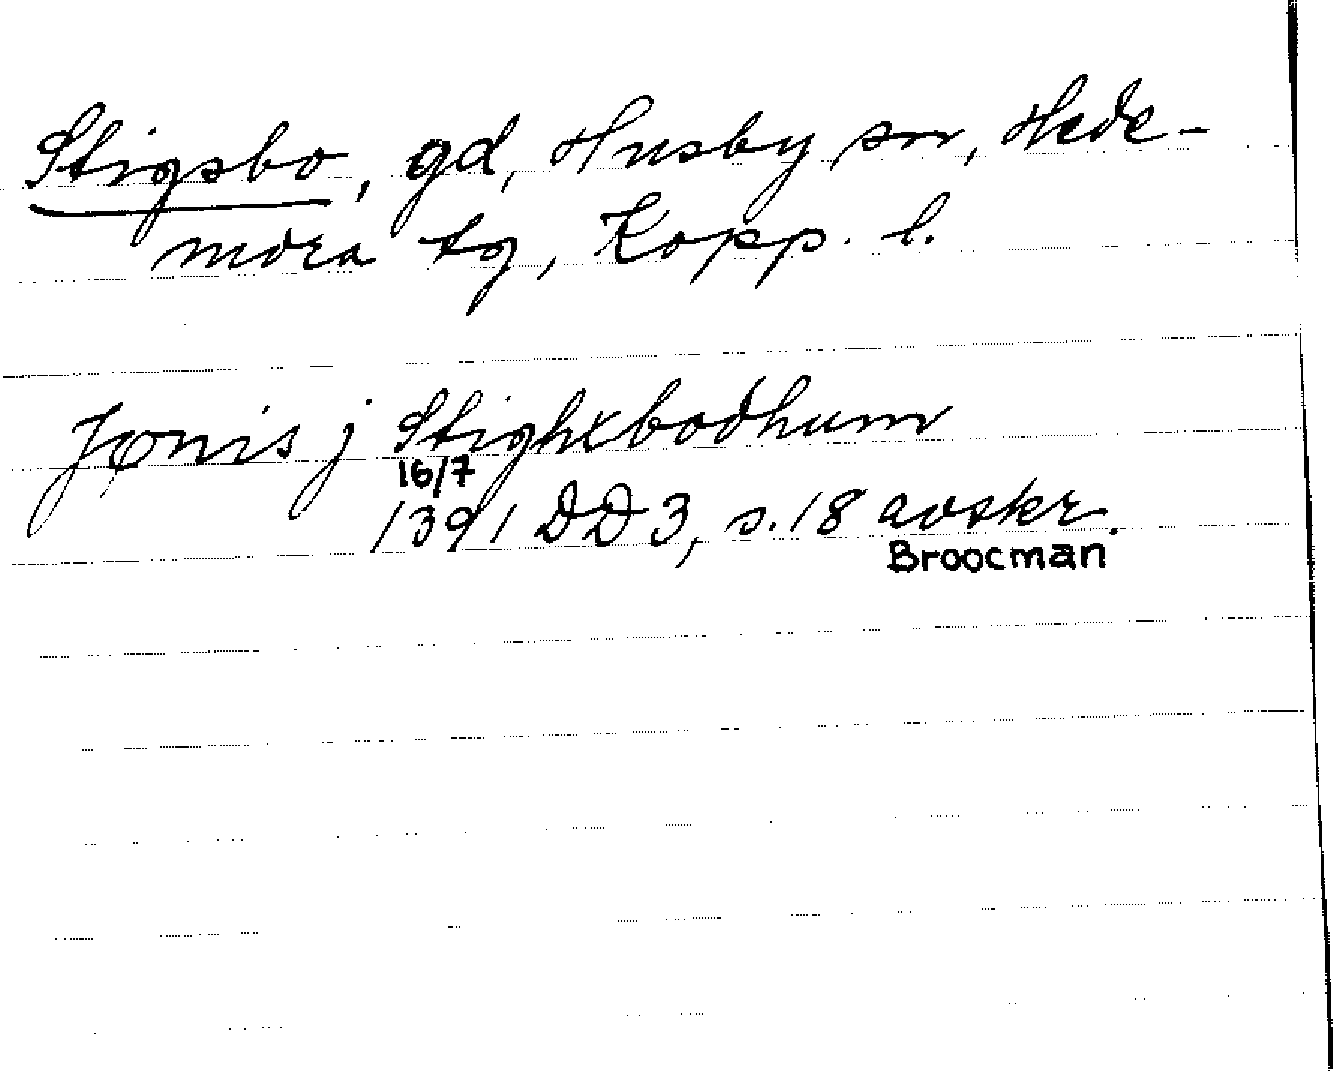 Stigsbo, gd, Husby sn, Hede-
mora tg, Kopp. l.
Jønis j Stighxbodhum
16/7
1391 DD 3, s. 18 avskr.
Broocman